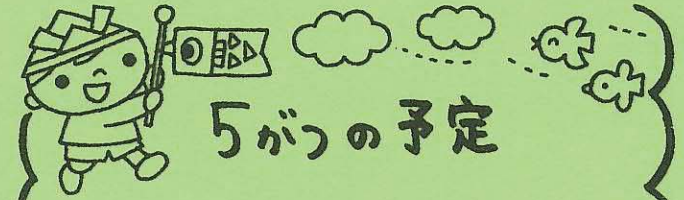 5がつの予定